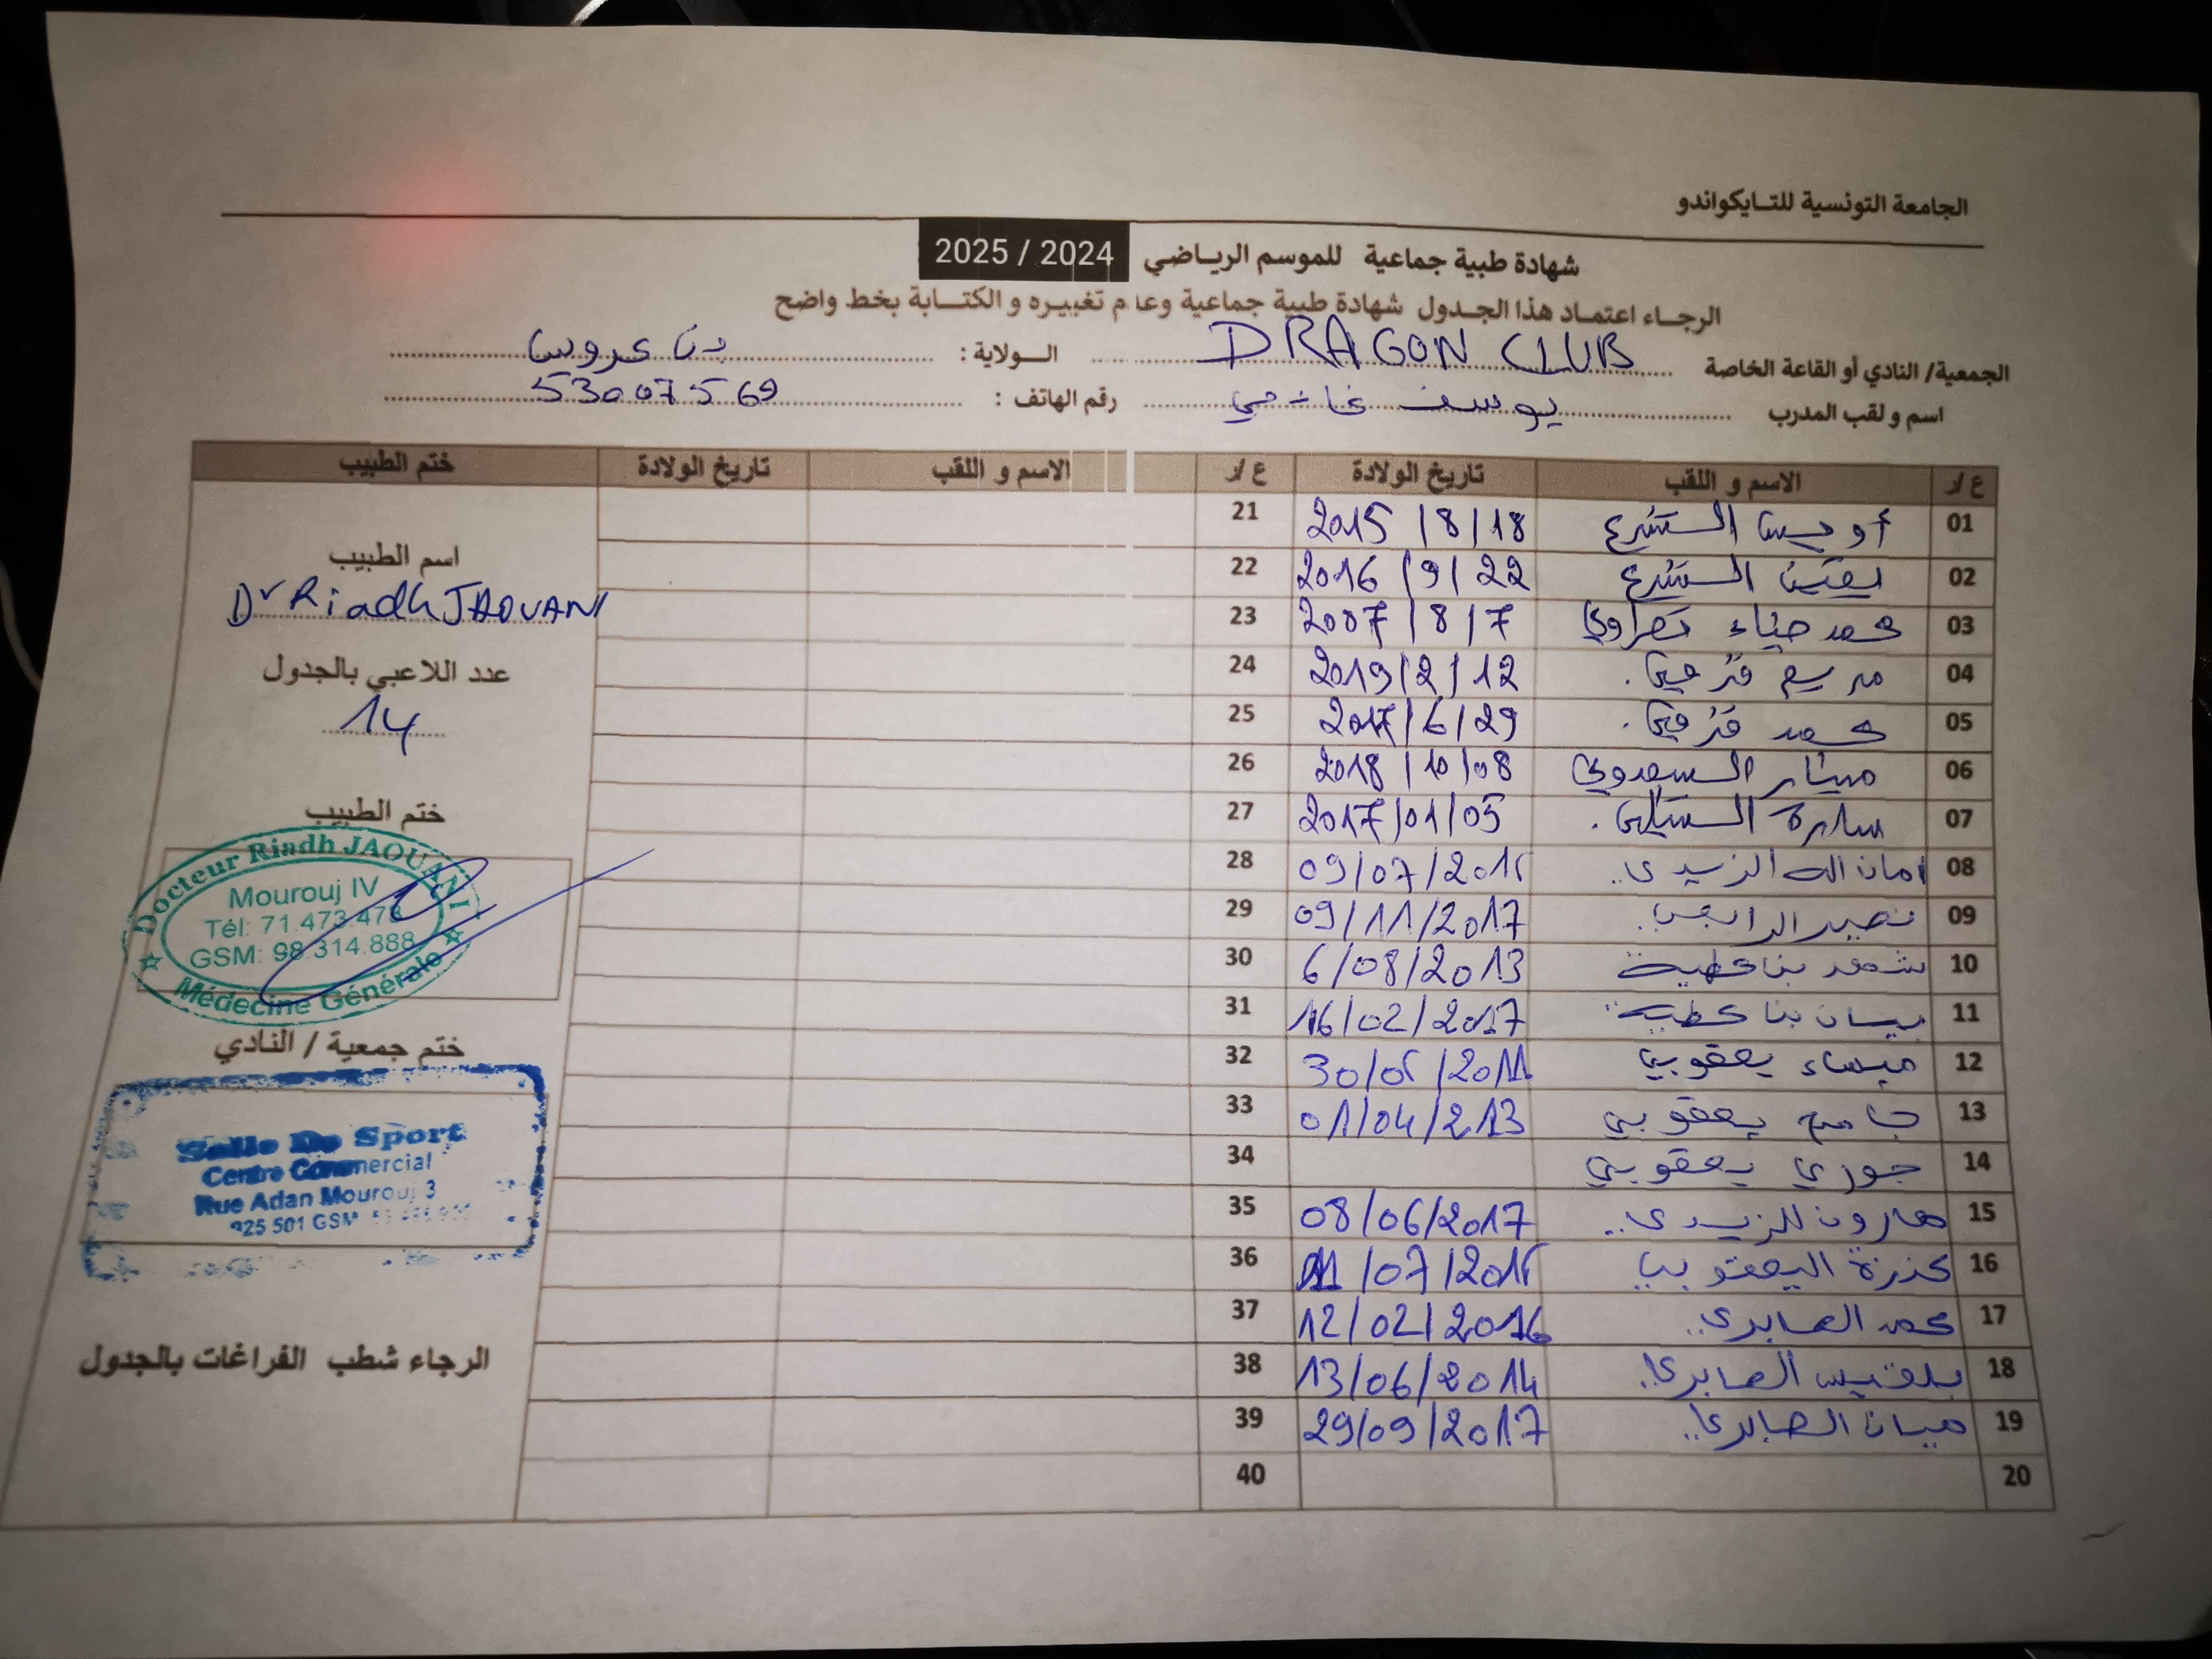 الجامعة التونسية للتايكواندو
شهادة طبية جماعية للموسم الرياضي 2024 / 2025
الرجاء اعتماد هذا الجدول شهادة طبية جماعية وعدم تغييره و الكتابة بخط واضح
الجمعية/ النادي أو القاعة الخاصة DRAGON CLUB الولاية : بن عروس
اسم و لقب المدرب يوسف رقم الهاتف : 53007569
ع/ر الاسم و اللقب تاريخ الولادة ع/ر الاسم و اللقب تاريخ الولادة ختم الطبيب
01 أويس 2015/8/18 21
02 2016/9/22 22
03 محمد ضياء 2007/8/7 23
04 مريم 2019/2/12 24
05 محمد 2017/6/29 25
06 2018/10/08 26
07 سارة 2017/01/05 27
08 امان الله الزيدي 09/07/201 28
09 نصير 09/11/2017 29
10 بن عطية 6/08/2013 30
11 بيسان بن عطية 16/02/2017 31
12 ميساء يعقوبي 30/05/2011 32
13 يعقوبي 01/04/213 33
14 جوري يعقوبي 34
15 هارون الزيدي 08/06/2017 35
16 اليعقوبي /07/201 36
17 محمد الصابري 12/02/2016 37
18 بلقيس الصابري 13/06/2014 38
19 ميسان الصابري 29/09/2017 39
20 40
اسم الطبيب
Dr Riadh JAOUANI
عدد اللاعبي بالجدول
14
ختم الطبيب
Docteur Riadh JAOUANI
Mourouj IV
Tél: 71.473.473
GSM: 98.314.888
Médecine Générale
ختم جمعية / النادي
Salle De Sport
Centre Commercial
Rue Adan Mourouj 3
925 501 GSM
الرجاء شطب الفراغات بالجدول